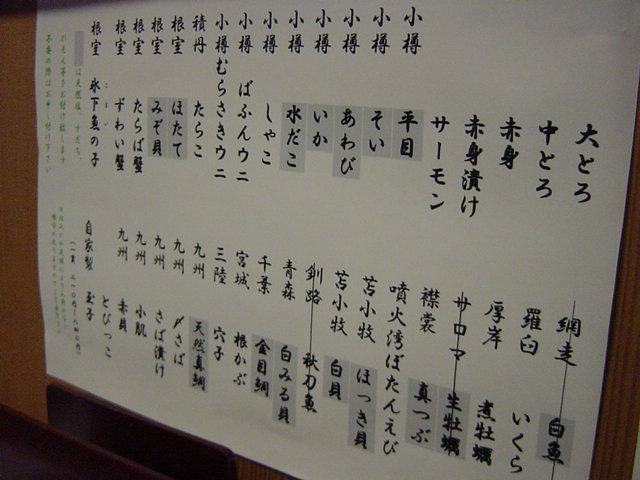 大とろ
中とろ
赤身
赤身漬け
サーモン
小樽 平目
小樽 そい
小樽 あわび
小樽 いか
小樽 水だこ
小樽 しゃこ
小樽 ばふんウニ
小樽 むらさきウニ
積丹 たらこ
根室 ほたて
根室 みぞ貝
根室 たらば蟹
根室 ずわい蟹
根室 氷下魚の子
こまい
は天然塩、すだち、
れもん等をお付け致します
不要の際はお申し付け下さい
網走 白魚
羅臼 いくら
厚岸 煮牡蠣
サロマ 生牡蠣
襟裳 真つぶ
噴火湾 ぼたんえび
苫小牧 ほっき貝
苫小牧 白貝
釧路 秋刀魚
青森 白みる貝
千葉 金目鯛
宮城 根かぶ
三陸 穴子
九州 天然真鯛
九州 〆さば
九州 さば漬け
九州 小肌
九州 赤貝
とびっこ
自家製 玉子